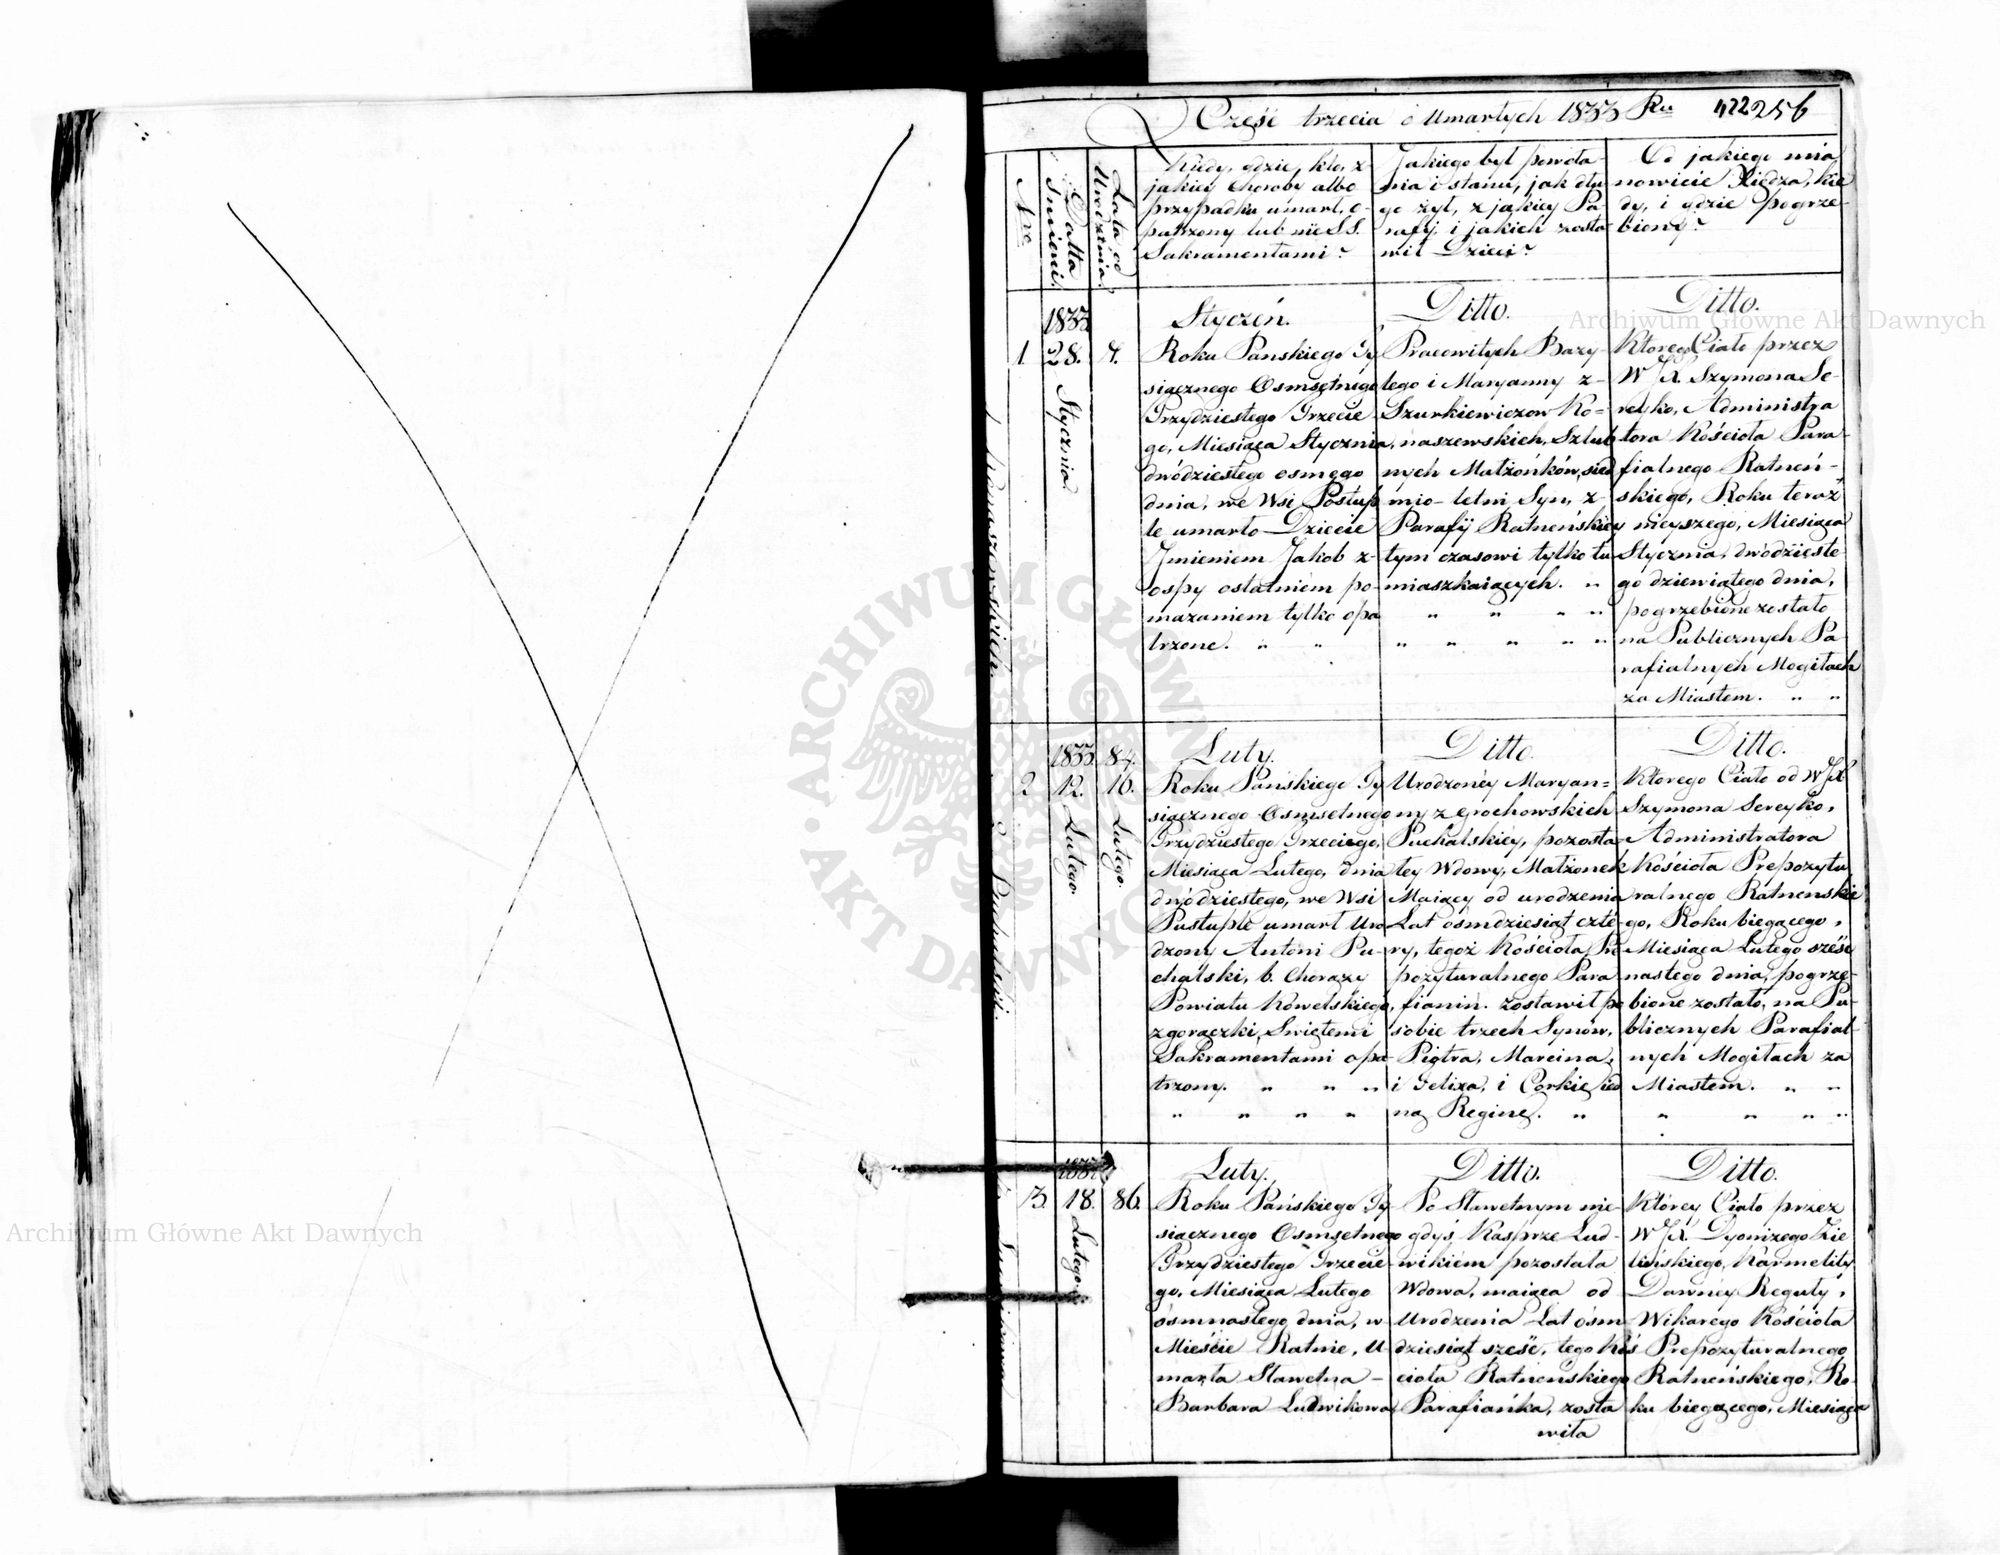 Część trzecia o Umarłych 1833 Ru 422 256
Nro
Datta Imienie.
Lata od Urodzenia.
Kiedy, gdzie, kto, z-
jakiey Choroby albo
przypadku umarł, o-
patrzony lub nie S.S.
Sakramentami?
Jakiego był powoła-
nia i stanu, jak dłu
go żył, z jakiey Pa-
rafij, i jakich zosta-
wił Dzieci?
Od jakiego mia
nowicie Xiędza, kie
dy, i gdzie pogrze-
biony?
Konaszewskich.
1
1833
28.
Stycznia.
7.
Styczeń.
Roku Pańskiego Ty
siącznego Osmsetnego
Trzydziestego Trzecie
go, Miesiąca Stycznia,
dwódziestego osmego
dnia, we Wsi Postup
le umarło Dziecie
Imieniem Jakob z-
ospy ostatniem po-
mazaniem tylko opa
trzone. " "
Ditto.
Pracowitych Bazy-
lego i Maryanny z-
Szurkiewiczow Ko-
naszewskich, Szlub
nych Małżonków, sied
mio-letni Syn, z-
Parafij Ratneńskiey
tym czasowi tylko tu
mieszkaiących. "
" " " "
" " " " "
Ditto.
Ktorego Ciało przez
W JX. Szymona Se-
reyko, Administra
tora Kościoła Para-
fialnego Ratneń-
skiego, Roku teraź
nieyszego, Miesiąca
Stycznia, dwódzieste
go dziewiątego dnia,
pogrzebione zostało
na Publicznych Pa-
rafialnych Mogiłach
za Miastem. " "
Puchalski.
2
1833.
12.
Lutego.
84.
16.
Lutego.
Luty.
Roku Pańskiego Ty
siącznego Osmsetnego
Trzydziestego Trzeciego,
Miesiąca Lutego, dnia
dwódziestego, we Wsi
Postuple umarł Uro
dzony Antoni Pu-
chalski, b. Chorąży
Powiatu Kowelskiego,
z gorączki, Swiętemi
Sakramentami opa-
trzony. " " "
" " " "
Ditto.
Urodzonéy Maryan=
ny z Grochowskich
Puchalskiéy, pozosta
łey Wdowy, Małżonek
Maiący od urodzenia
Lat ośmdziesiąt czté-
ry, tegoż Kościoła Pre
pozyturalnego Para
fianin. zostawił po
sobie trzech Synów,
Piotra, Marcina,
i Felixa, i Corkię ied
ną Reginę. "
Ditto.
Ktorego Ciało od W JX
Szymona Sereyko,
Administratora
Kościoła Prepozytu
ralnego Ratnenskie
go, Roku biegącego,
Miesiąca Lutego szés
nastego dnia, pogrze-
bione zostało, na Pu-
blicznych Parafial-
nych Mogiłach za
Miastem. " "
" " " "
3.
1833
18.
Lutego.
86.
Luty.
Roku Pańskiego Ty-
siącznego Osmsetnego
Trzydziestego Trzecie-
go, Miesiąca Lutego
ósmnastego dnia, w
Mieście Ratnie, U-
marła Sławetna -
Barbara Ludwikowa,
Ditto.
Po Sławetnym nie-
gdyś Kasprze Lud-
wikiem pozostała
Wdowa, maiąca od
Urodzenia Lat ósm
dziesiąt sześć, tego Koś
cioła Ratneńskiego
Parafianka, zosta
wiła
Ditto.
Któréy Ciało przez
W JX. Dyonizego Zie
lińskiego, Karmelity
Dawnéy Reguły,
Wikarego Kościoła
Prepozyturalnego
Ratneńskiego, Ro-
ku biegącego, Miesiąca
Archiwum Główne Akt Dawnych
Archiwum Główne Akt Dawnych
ARCHIWUM GŁÓWNE AKT DAWNYCH